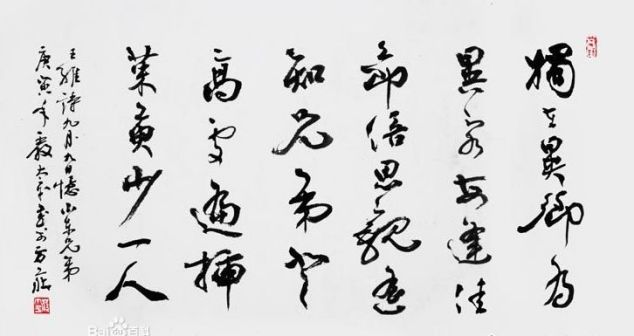 獨在異鄉為
異客每逢佳
節倍思親遙
知兄弟登
高處遍插
茱萸少一人
王維詩九月九日憶山東兄弟
庚寅年
Bai百科